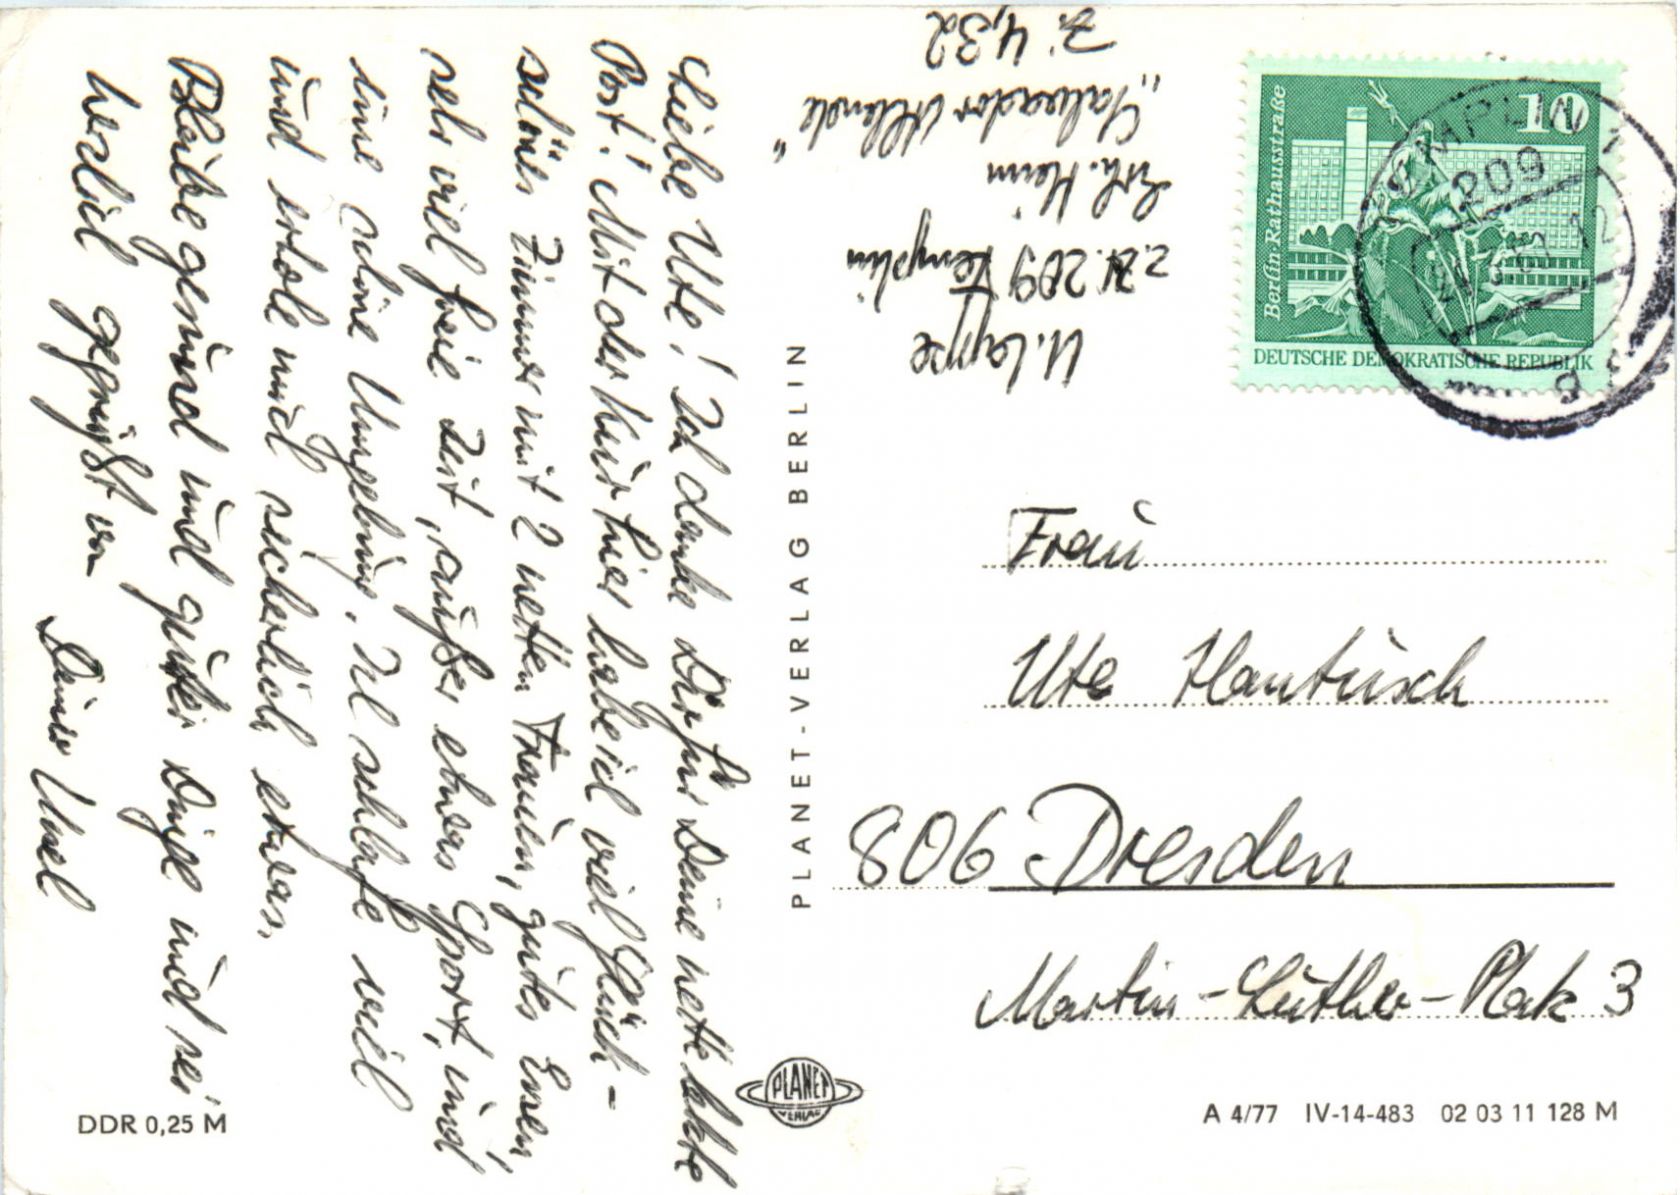 Liebe Ute! Ich danke Dir für Deine nette letzte
Post! Mit der Kur hier habe ich viel Glück –
schönes Zimmer mit 2 netten Frauen, gutes Essen,
sehr viel freie Zeit, außer etwas Sport, und
eine schöne Umgebung. Ich schlafe viel
und erhole mich sicherlich etwas.
Bleibe gesund und guter Dinge und sei
herzlich gegrüßt von
Deiner Ursel
U. Lappe
z.Zt. 209 Templin
Erh. Heim
„Salvador Allende"
Zi. 432
PLANET-VERLAG BERLIN
Berlin-Rathausstraße
10
DEUTSCHE DEMOKRATISCHE REPUBLIK
TEMPLIN 1
209
Frau
Ute Hantusch
806 Dresden
Martin-Luther-Platz 3
PLANET
VERLAG
DDR 0,25 M
A 4/77 IV-14-483 02 03 11 128 M